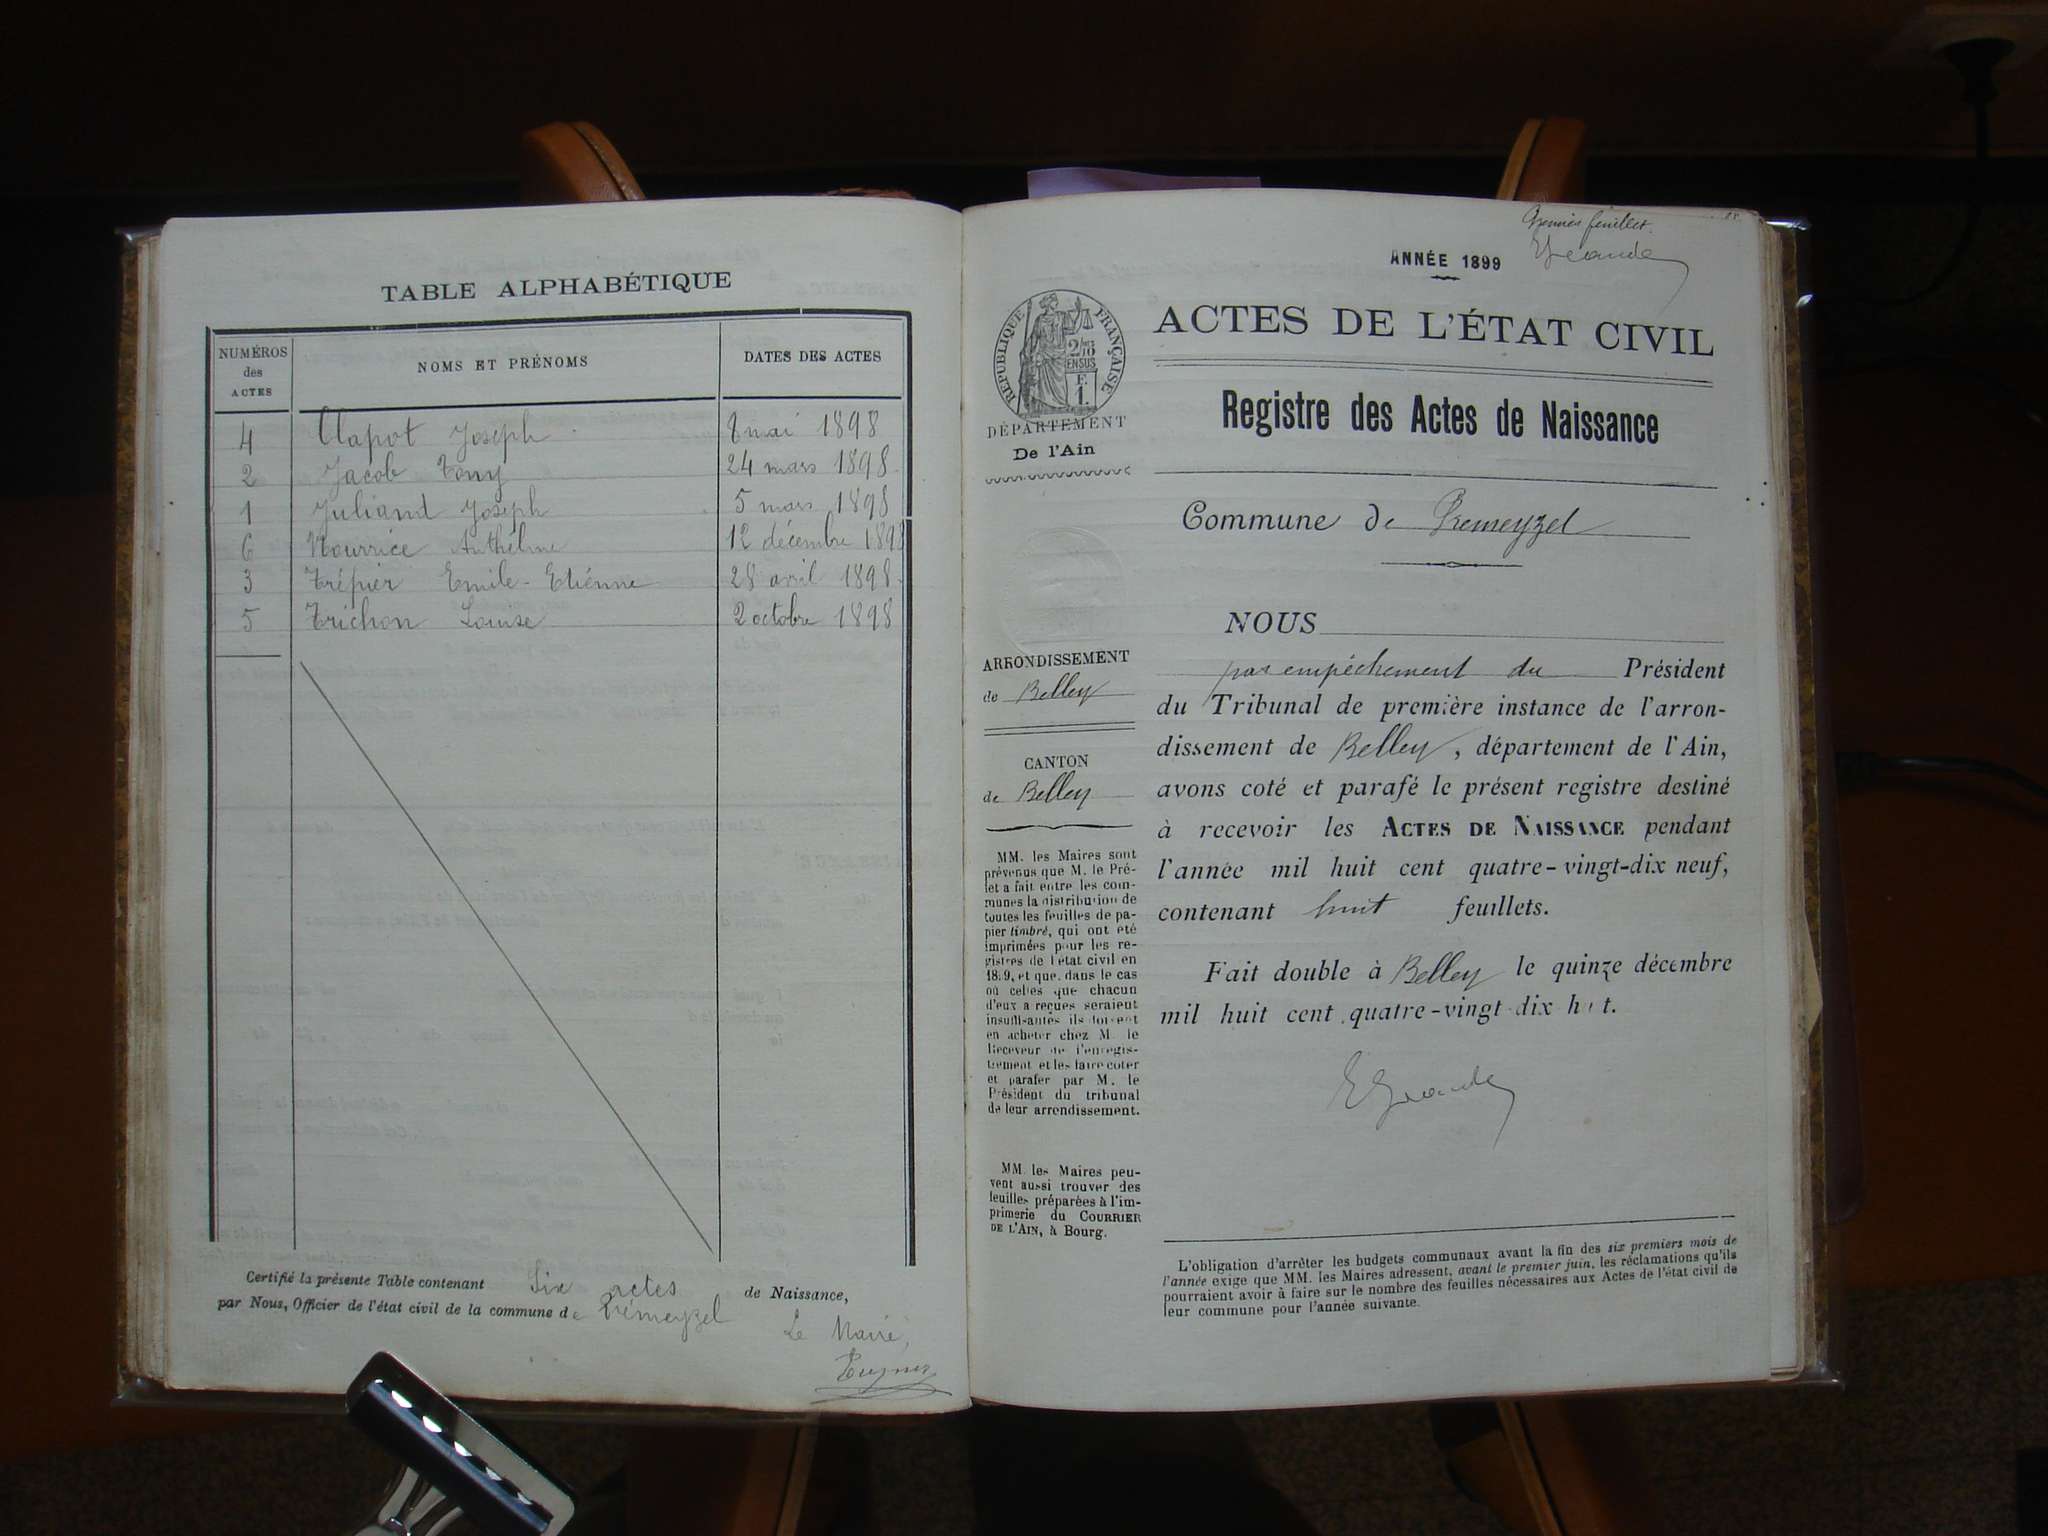 TABLE ALPHABÉTIQUE
NUMÉROS des ACTES NOMS ET PRÉNOMS DATES DES ACTES
4 Clapot Joseph 8 mai 1898
2 Jacob Tony 24 mars 1898
1 Juliand Joseph 5 mars 1898
6 Nourrice Anthelme 12 décembre 1898
3 Trépier Emile-Etiénne 28 avril 1898
5 Trichon Louise 2 octobre 1898
Certifié la présente Table contenant Six actes de Naissance,
par Nous, Officier de l'état civil de la commune de Prémeyzel
Le Maire,
Premier feuillet.
ANNÉE 1899
ACTES DE L'ÉTAT CIVIL
RÉPUBLIQUE FRANÇAISE
2/10
EN SUS
F.
1.
DÉPARTEMENT
De l'Ain
Registre des Actes de Naissance
Commune de Premeyzel
ARRONDISSEMENT
de Belley
CANTON
de Belley
MM. les Maires sont
prévenus que M. le Pré-
fet a fait entre les com-
munes la distribution de
toutes les feuilles de pa-
pier timbré, qui ont été
imprimées pour les re-
gistres de l'état civil en
1899, et que, dans le cas
où celles que chacun
d'eux a reçues seraient
insuffisantes ils doivent
en acheter chez M. le
Receveur de l'enregis-
trement et les faire coter
et parafer par M. le
Président du tribunal
de leur arrondissement.
MM. les Maires peu-
vent aussi trouver des
feuilles préparées à l'im-
primerie du COURRIER
DE L'AIN, à Bourg.
NOUS
par empêchement du Président
du Tribunal de première instance de l'arron-
dissement de Belley, département de l'Ain,
avons coté et parafé le présent registre destiné
à recevoir les ACTES DE NAISSANCE pendant
l'année mil huit cent quatre-vingt-dix neuf,
contenant huit feuillets.
Fait double à Belley le quinze décembre
mil huit cent quatre-vingt dix huit.
L'obligation d'arrêter les budgets communaux avant la fin des six premiers mois de
l'année exige que MM. les Maires adressent, avant le premier juin, les réclamations qu'ils
pourraient avoir à faire sur le nombre des feuilles nécessaires aux Actes de l'état civil de
leur commune pour l'année suivante.